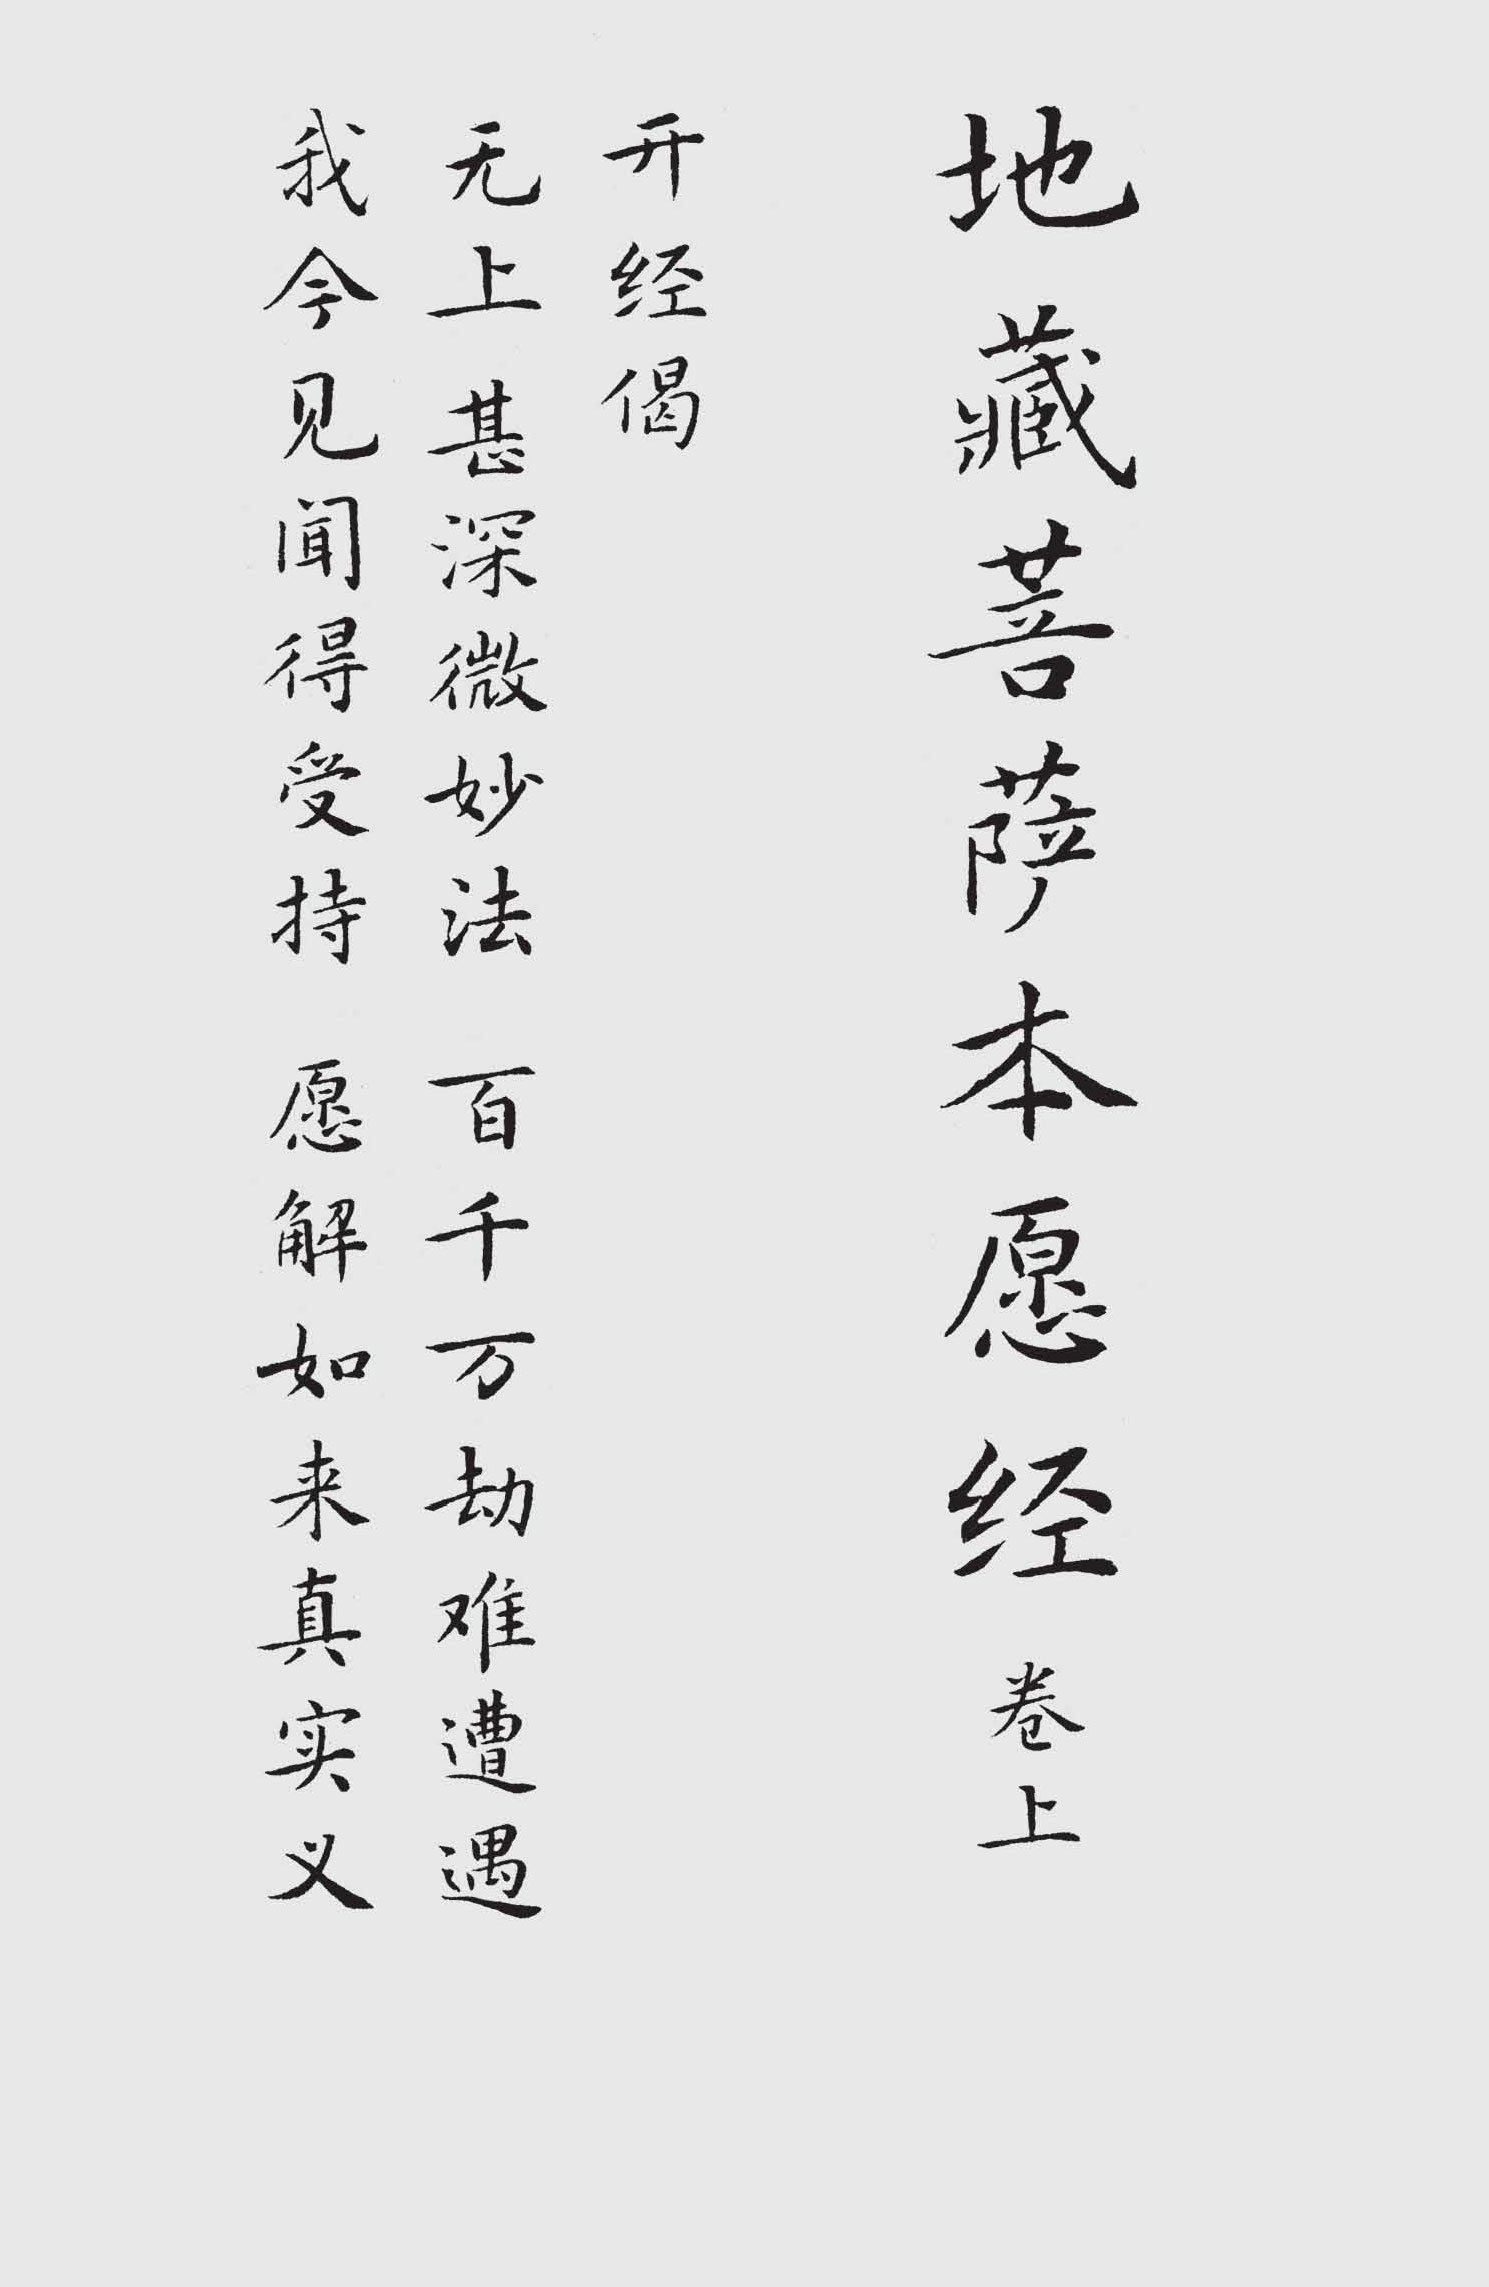 地藏菩萨本愿经 卷上
开经偈
无上甚深微妙法 百千万劫难遭遇
我今见闻得受持 愿解如来真实义